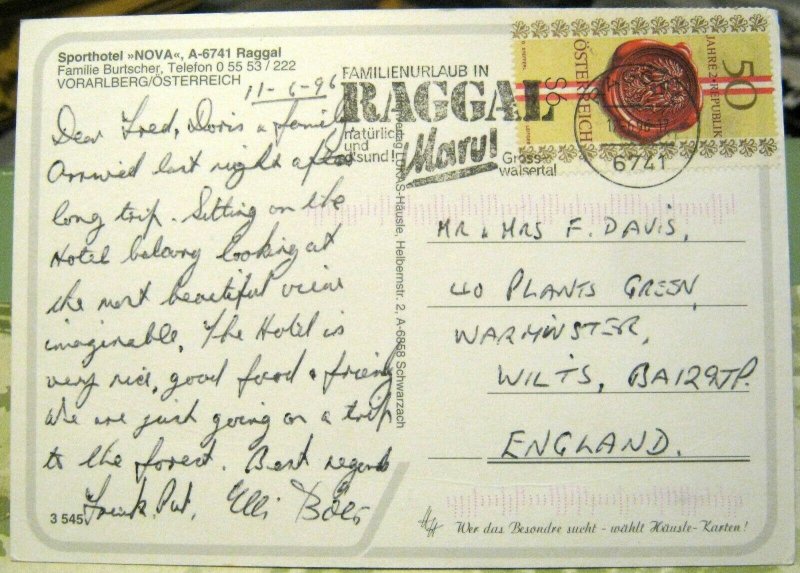 Sporthotel »NOVA«, A-6741 Raggal
Familie Burtscher, Telefon 0 55 53 / 222
VORARLBERG/ÖSTERREICH
11-6-96
Dear Fred, Doris & famil
Arrived last night after
long trip. Sitting on the
Hotel balcony looking at
the most beautiful view
imaginable. The Hotel is
very nice, good food & friend
We are just going on a trip
to the forest. Best regards
Frank. Pat. Elli
3 545
FAMILIENURLAUB IN
RAGGAL
natürlich
und
gsund!
Marul
Gross-
walsertal
6741
ÖSTERREICH
S6
50
JAHRE 2. REPUBLIK
Häusle, Helbernstr. 2, A-6858 Schwarzach
MR & MRS F. DAVIS,
40 PLANTS GREEN,
WARMINSTER,
WILTS, BA129TP.
ENGLAND.
Wer das Besondre sucht - wählt Häusle-Karten!